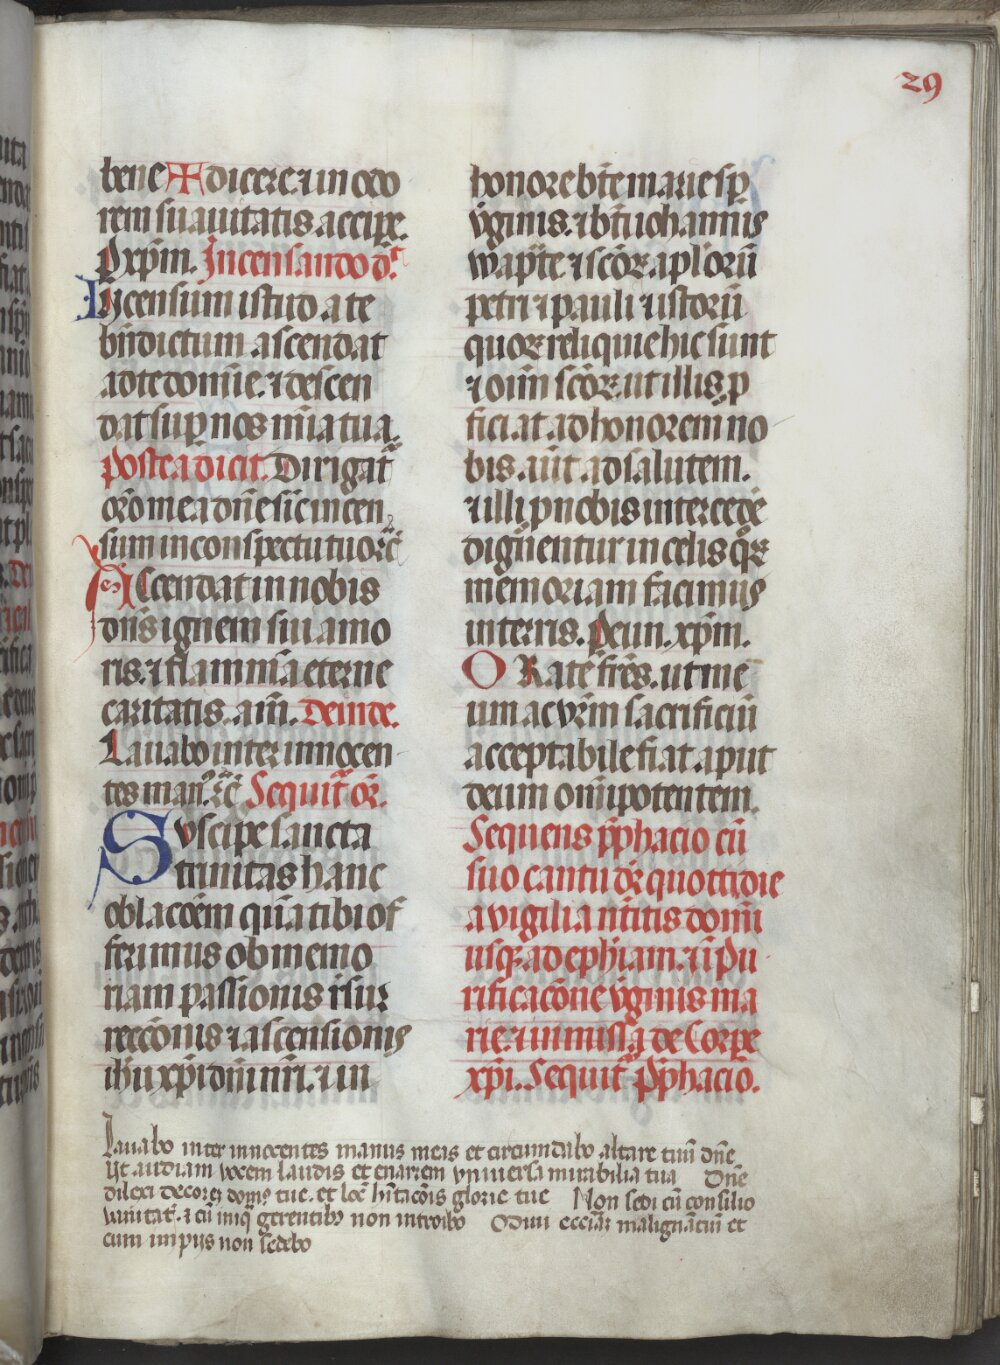 29
bene ✠ dicere. ⁊ in odo
rem suauitatis accipe.
P xp̄m. Incensando d̄r̄
Incensum istud a te
bn̄dictum ascendat
ad te domīe. ⁊ descen
dat sup nos mīa tua.
postea dicit. Dirigat᷑
or̄o mea dn̄e sic̄ incen
sum in conspectu tuo ⁊c̄
Ascendat in nobis
dn̄s ignem sui amo
ris. ⁊ flammā eterne
caritatis. am̄. Deinde.
Lauabo inter innocen
tes man᷒. ⁊c̄ Sequit᷑ or̄.
Suscipe sancta
trinitas hanc
oblacōem quā tibi of
ferimus ob memo
riam passionis r̄sur
reccōnis ⁊ ascensionis
ih̄u xp̄i dn̄i nr̄i. ⁊ in
honore bt̄e marie sp̄
v̄ginis. ⁊ bt̄i iohannis
bapt̄e ⁊ scōꝝ ap̄loꝝū
petri ⁊ pauli ⁊ istorū
quoꝝ reliquie hic sunt
⁊ oīm scōꝝ. ut illis p
ficiat ad honorem no
bis aūt ad salutem.
⁊ illi p nobis intercedē
dignentur in celis qͦꝝ
memoriam facimus
in terris. Peun. xp̄m.
Orate fr̄es. ut me
um ac vr̄m sacrificiū
acceptabile fiat aput
deum om̄ipotentem.
Sequens p̄phacio cū
suo cantu dr̄ quottidie
a vigilia nt̄itis domī
usqꝫ ad eph̄iam. ⁊ ī pu
rificacōne v̄ginis ma
rie. ⁊ in missa de Corpe
xp̄i. Sequit᷑ P̄phacio.
Lauabo inter innocentes manus meas et circundabo altare tuū dn̄e
Vt audiam vocem laudis et enarrem vniuersa mirabilia tua Dn̄e
dilexi decorē domꝰ tue. et locū hītacōis glorie tue Non sedi cū consilio
vanitat᷒. ⁊ cū iniq̄ gerentibꝫ non introibo Odiui eccīaꝫ malignāciū et
cum impijs non sedebo